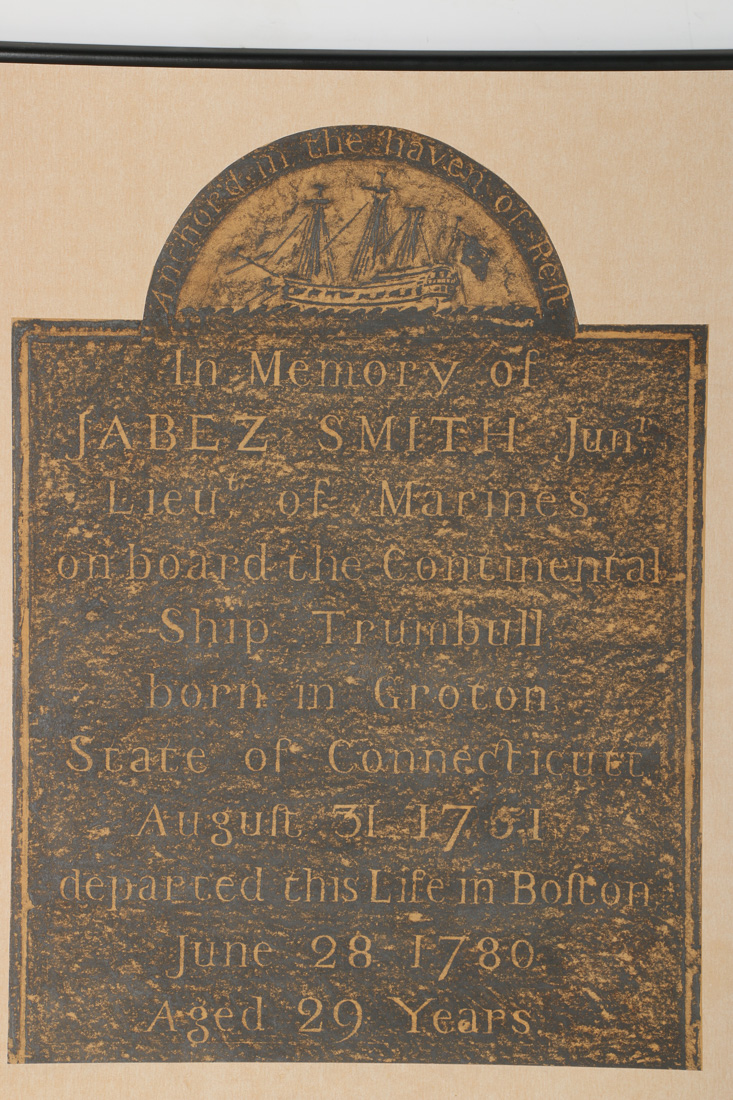 Anchord in the haven of Reſt
In Memory of
JABEZ SMITH Junʳ.
Lieuᵗ of Marines
on board the Continental
Ship Trumbull
born in Groton
State of Connecticutt
Auguſt 31 1751
departed this Life in Boſton
June 28 1780
Aged 29 Years.